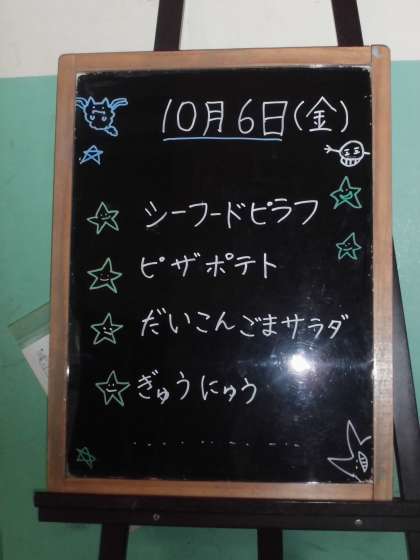 10月6日(金)
シーフードピラフ
ピザポテト
だいこんごまサラダ
ぎゅうにゅう